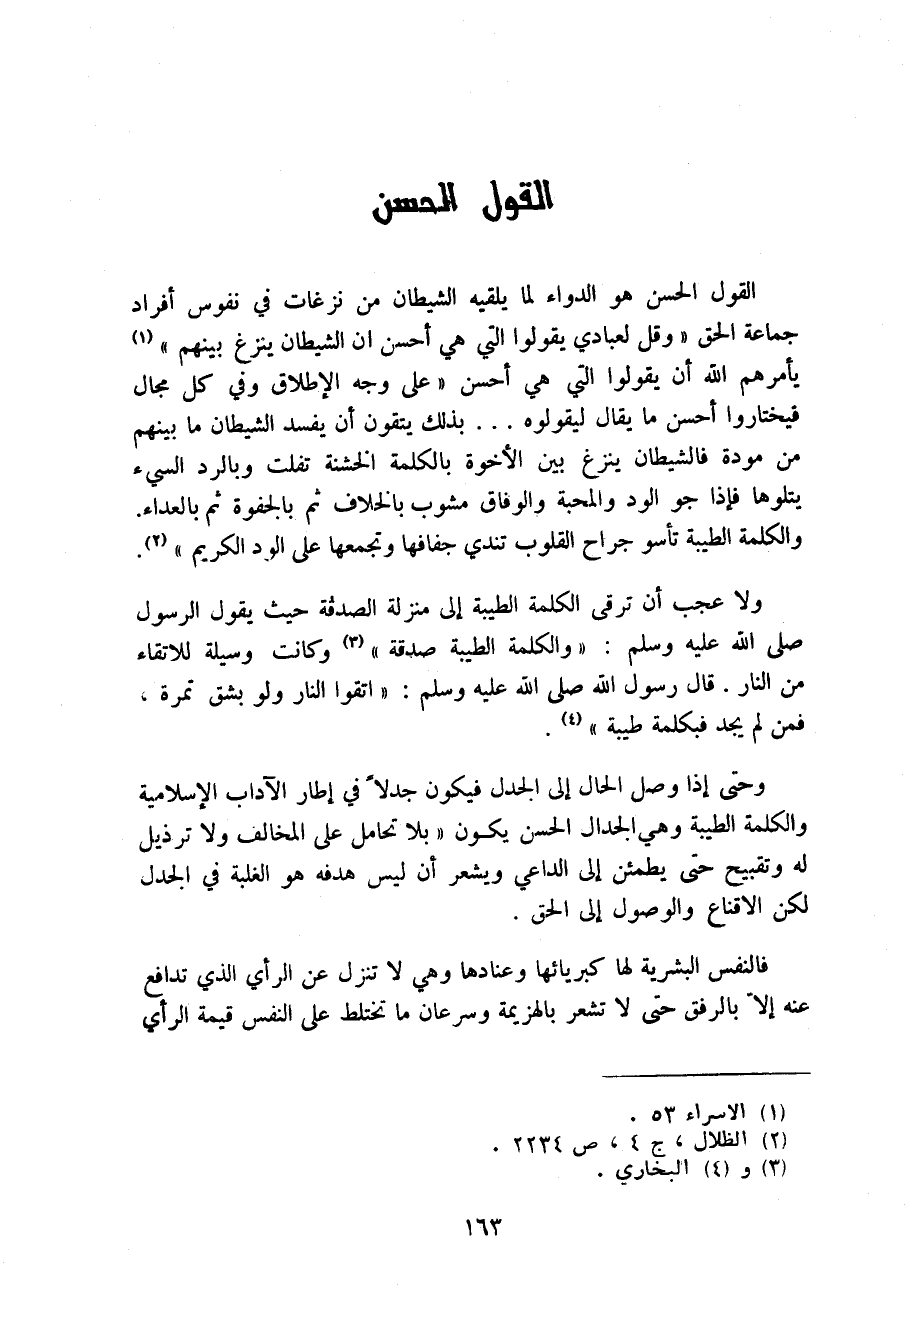 القول الحسن
القول الحسن هو الدواء لما يلقيه الشيطان من نزغات في نفوس أفراد
جماعة الحق « وقل لعبادي يقولوا التي هي أحسن ان الشيطان ينزغ بينهم » (١)
يأمرهم الله أن يقولوا التي هي أحسن « على وجه الإطلاق وفي كل مجال
فيختاروا أحسن ما يقال ليقولوه . . . بذلك يتقون أن يفسد الشيطان ما بينهم
من مودة فالشيطان ينزغ بين الأخوة بالكلمة الخشنة تفلت وبالرد السيء
يتلوها فإذا جو الود والمحبة والوفاق مشوب بالخلاف ثم بالجفوة ثم بالعداء.
والكلمة الطيبة تأسو جراح القلوب تندي جفافها وتجمعها على الود الكريم » (٢).
ولا عجب أن ترقى الكلمة الطيبة إلى منزلة الصدقة حيث يقول الرسول
صلى الله عليه وسلم : « والكلمة الطيبة صدقة » (٣) وكانت وسيلة للاتقاء
من النار . قال رسول الله صلى الله عليه وسلم : « اتقوا النار ولو بشق تمرة ،
فمن لم يجد فبكلمة طيبة » (٤) .
وحتى إذا وصل الحال إلى الجدل فيكون جدلاً في إطار الآداب الإسلامية
والكلمة الطيبة وهي الجدال الحسن يكون « بلا تحامل على المخالف ولا ترذيل
له وتقبيح حتى يطمئن إلى الداعي ويشعر أن ليس هدفه هو الغلبة في الجدل
لكن الاقناع والوصول إلى الحق .
فالنفس البشرية لها كبريائها وعنادها وهي لا تنزل عن الرأي الذي تدافع
عنه إلاّ بالرفق حتى لا تشعر بالهزيمة وسرعان ما تختلط على النفس قيمة الرأي
(١) الاسراء ٥٣ .
(٢) الظلال ، ج ٤ ، ص ٢٢٣٤ .
(٣) و (٤) البخاري .
١٦٣